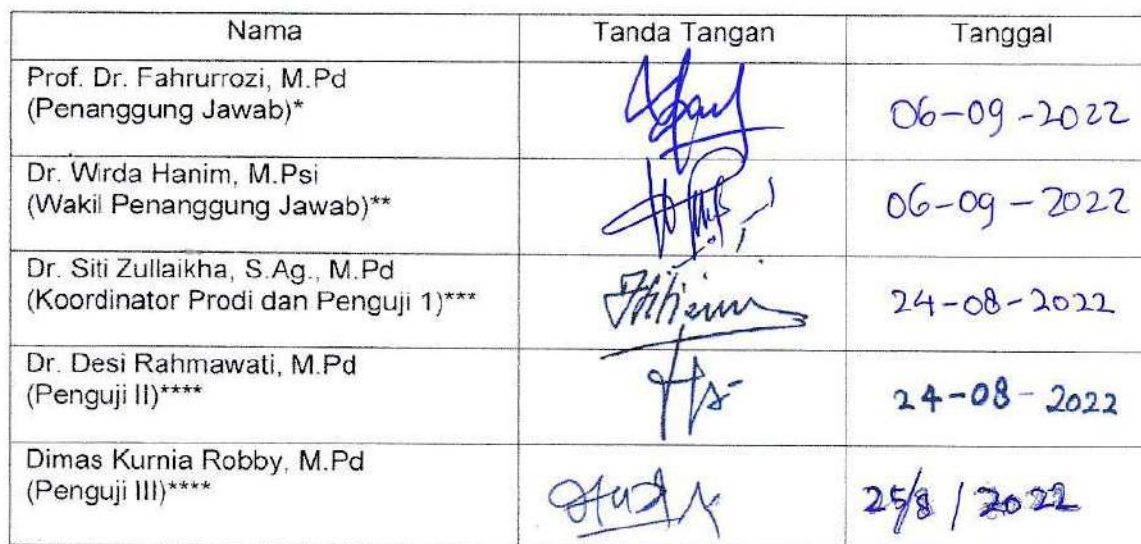 Nama Tanda Tangan Tanggal
Prof. Dr. Fahrurrozi, M.Pd
(Penanggung Jawab)*
06-09-2022
Dr. Wirda Hanim, M.Psi
(Wakil Penanggung Jawab)**
06-09-2022
Dr. Siti Zullaikha, S.Ag., M.Pd
(Koordinator Prodi dan Penguji 1)***
24-08-2022
Dr. Desi Rahmawati, M.Pd
(Penguji II)****
24-08-2022
Dimas Kurnia Robby, M.Pd
(Penguji III)****
25/8/2022